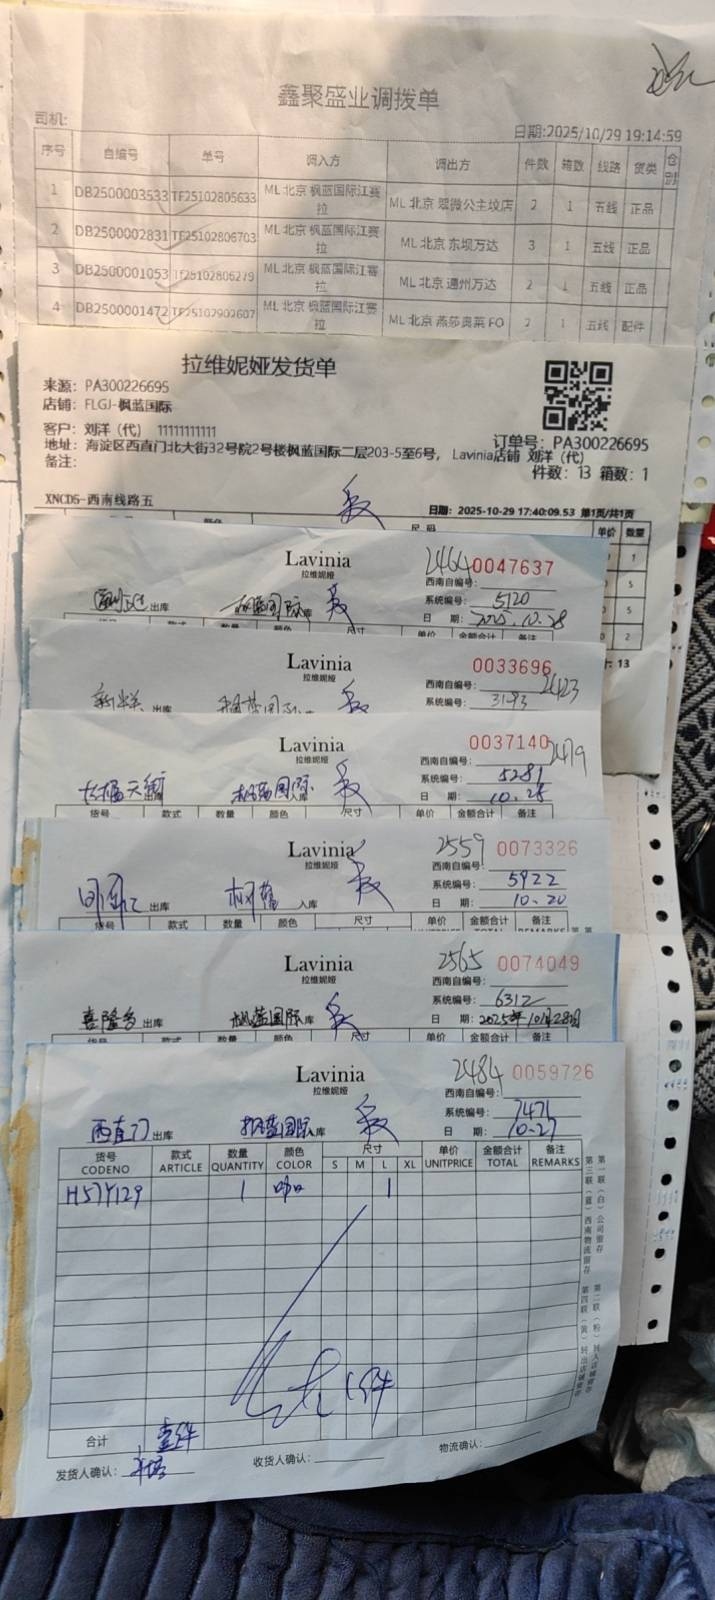 鑫聚盛业调拨单
司机:
日期:2025/10/29 19:14:59
序号 自编号 单号 调入方 调出方 件数 箱数 线路 货类 仓别
1 DB2500003533 TF25102805633 ML 北京 枫蓝国际江赛拉 ML 北京 翠微公主坟店 2 1 五线 正品
2 DB2500002831 TF25102806703 ML 北京 枫蓝国际江赛拉 ML 北京 东坝万达 3 1 五线 正品
3 DB2500001053 TF25102806279 ML 北京 枫蓝国际江赛拉 ML 北京 通州万达 2 1 五线 正品
4 DB2500001472 TF25102902607 ML 北京 枫蓝国际江赛拉 ML 北京 燕莎奥莱 FO 2 1 五线 配件
拉维妮娅发货单
来源: PA300226695
店铺: FLGJ-枫蓝国际
客户: 刘洋（代） 11111111111
订单号: PA300226695
地址: 海淀区西直门北大街32号院2号楼枫蓝国际二层203-5至6号, Lavinia店铺 刘洋（代）
备注:
件数: 13 箱数: 1
XNCD5-西南线路五
日期: 2025-10-29 17:40:09.53 第1页/共1页
颜色 尺码 单价 数量
1
5
5
2
13
Lavinia
拉维妮娅
2464 0047637
西南自编号:
系统编号: 5120
日 期: 2025.10.28
出库 枫蓝国际库
货号 款式 数量 颜色 尺寸 单价 金额合计 备注
Lavinia
拉维妮娅
0033696
西南自编号: 2423
系统编号: 3193
出库
Lavinia
拉维妮娅
0037140
西南自编号: 2419
系统编号: 5281
日 期: 10.28
长楹天街 出库 枫蓝国际 入库
货号 款式 数量 颜色 尺寸 单价 金额合计 备注
Lavinia
拉维妮娅
2559 0073326
西南自编号:
系统编号: 5922
日 期: 10.20
出库 枫蓝 入库
货号 款式 数量 颜色 尺寸 单价 金额合计 备注
UNITPRICE TOTAL REMARKS
Lavinia
拉维妮娅
2565 0074049
西南自编号:
系统编号: 6312
日 期: 2025年10月28日
喜隆多 出库 枫蓝国际库
货号 款式 数量 颜色 尺寸 单价 金额合计 备注
Lavinia
拉维妮娅
2484 0059726
西南自编号:
系统编号: 7471
日 期: 10.27
西直门 出库 枫蓝国际库
货号 款式 数量 颜色 尺寸 单价 金额合计 备注
CODENO ARTICLE QUANTITY COLOR S M L XL UNITPRICE TOTAL REMARKS
H57Y129 1 咖 1
1件
合计 壹件
发货人确认: 收货人确认: 物流确认:
第一联（白）公司留存
第二联（粉）转入店铺留存
第三联（蓝）西南物流留存
第四联（黄）转出店铺留存